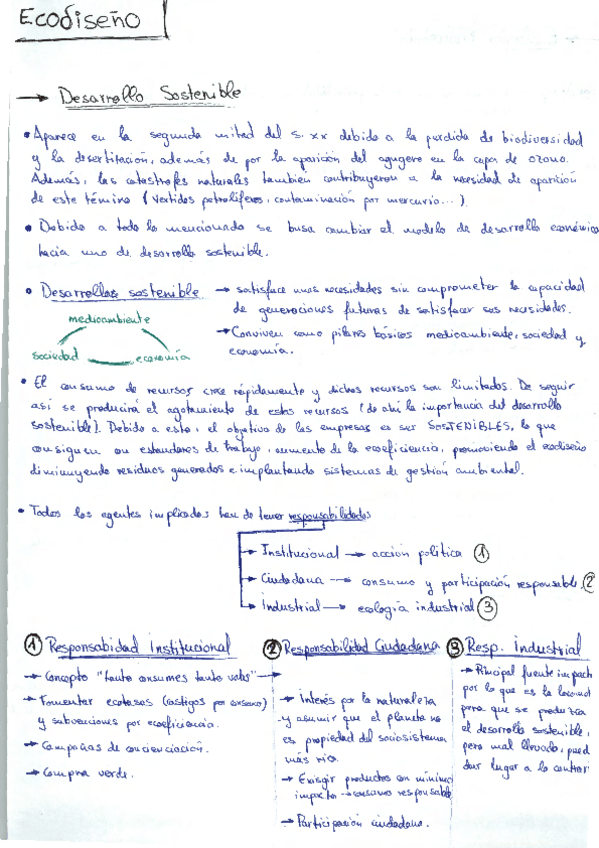 Ecodiseño
→ Desarrollo Sostenible
• Aparece en la segunda mitad del s. xx debido a la perdida de biodiversidad
y la desertitación, además de por la aparición del agugero en la capa de ozono.
Además, las catastrofes naturales también contribuyeron a la necesidad de aparición
de este término (vertidos petrolíferos, contaminación por mercurio...)
• Debido a todo lo mencionado se busa cambiar el modelo de desarrollo económico
hacia uno de desarrollo sostenible.
• Desarrollos sostenible → satisface unas necesidades sin comprometer la capacidad
de generaciones futuras de satisfacer sus necesidades.
medioambiente
→ Conviven como pilares básicos medioambiente, sociedad y
economía.
sociedad economía
• El consumo de recursos crece rápidamente y dichos recursos son limitados. De seguir
así se producirá el agotamiento de estos recursos (de ahí la importancia del desarrollo
sostenible). Debido a esto, el objetivo de las empresas es ser SOSTENIBLES, lo que
consiguen con estandares de trabajo, aumento de la ecoeficiencia, promoviendo el ecodiseño
disminuyendo residuos generados e implantando sistemas de gestión ambiental.
• Todos los agentes implicados han de tener responsabilidades
→ Institucional → acción política ①
→ Ciudadana → consumo y participación responsable. ②
→ Industrial → ecología industrial ③
① Responsabidad Institucional
→ Concepto "tanto consumes tanto votas" →
→ Fomentar ecotasas (castigos por exceso)
y subvenciones por ecoeficiencia.
→ Campañas de concienciación.
→ Compra verde.
② Responsabilidad Ciudadana
→ Interés por la naturaleza
y asumir que el planeta no
es propiedad del sociosistema
más rico.
→ Exisgir productos con mínimo
impacto → consumo responsable
→ Participación ciudadana.
③ Resp. Industrial
→ Principal fuente impacto
por lo que es la locomot
para que se produzca
el desarrollo sostenible,
pero mal llevado, pued
dar lugar a lo contrari